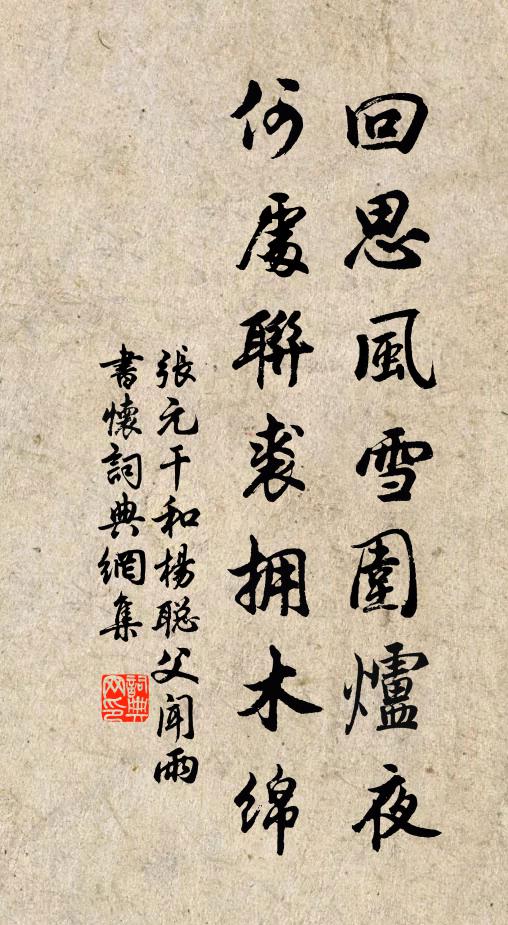 回思風雪圍爐夜
何處聯裘拥木綿
張元干和楊聡父闻雨
書懷詞典網集
詞典
网印